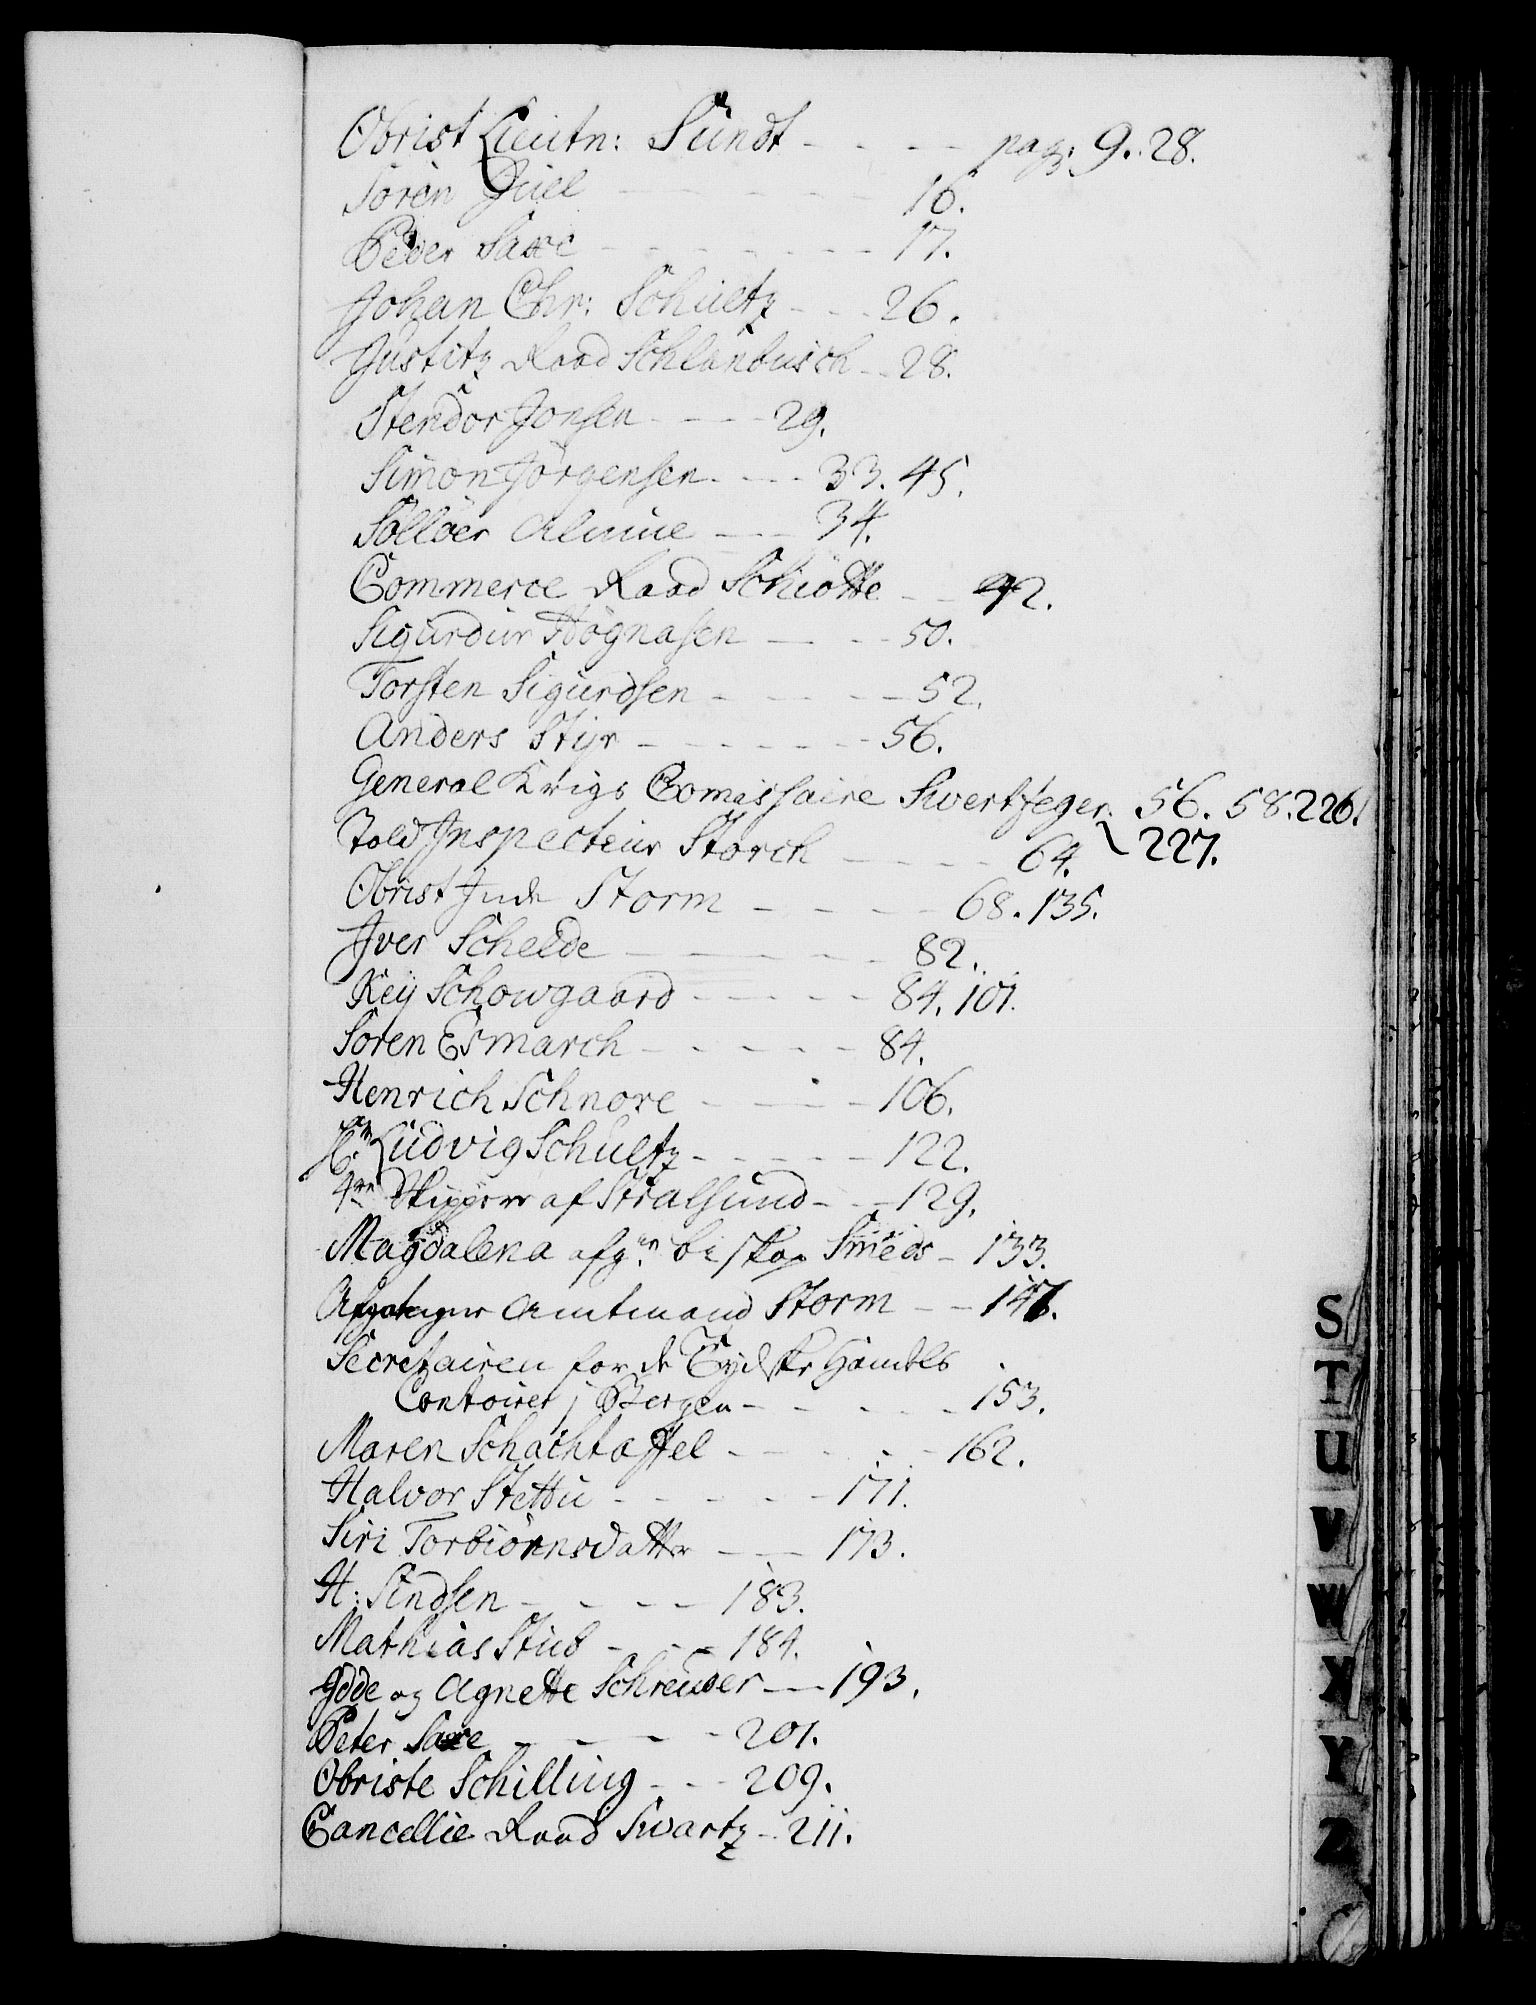 Obrist Lieutn: Sundt - - - - pag: 9. 28.
Soren Juel - - - - 16.
Peder Saxe - - - - - - 17.
Johan Chr: Schultz - - - 26.
Justitz Raad Schlanbusch - - 28.
Stendor Jonsen - - - - 29.
Simon Jörgensen - - - - 33. 45.
Sollöer Almue - - - 34.
Commerce Raad Schiötte - - 42.
Sigurdur Högnasen - - - 50.
Torsten Sigurdsen - - - - - 52.
Anders Stijr - - - - - - 56.
General Krigs Comissaire Swertfeger. 56. 58. 226.
Told Inspecteur Storch - - - - 64. 227.
Obrist Storm - - - - 68. 135.
Iver Schelde - - - - - 82.
Keij Schowgaard - - - - - 84. 101.
Soren Esmarch - - - - - 84.
Henrich Schnore - - - - 106.
Ludvig Schultz - - - - - 122.
4re Skippere af Stralsund - - - 129.
Magdalena afg:n biskop Smeds - 133.
Afgangne Amtmand Storm - - 147.
Secretairen for de Tydske Handels
Contoirer j Bergen - - - - - 153.
Maren Schachtaffel - - - - - 162.
Halvor Stettu - - - - - 171.
Siri Torbiörnsdatter - - - 173.
H: Sundsen - - - - 183.
Mathias Stub - - - 184.
Idde og Agnette Schreuder - - 193.
Peter Saxe - - - - 201.
Obriste Schilling - - - 209.
Cancellie Raad Swartz - - 211.
S
T
U
V
W
X
Y
Z